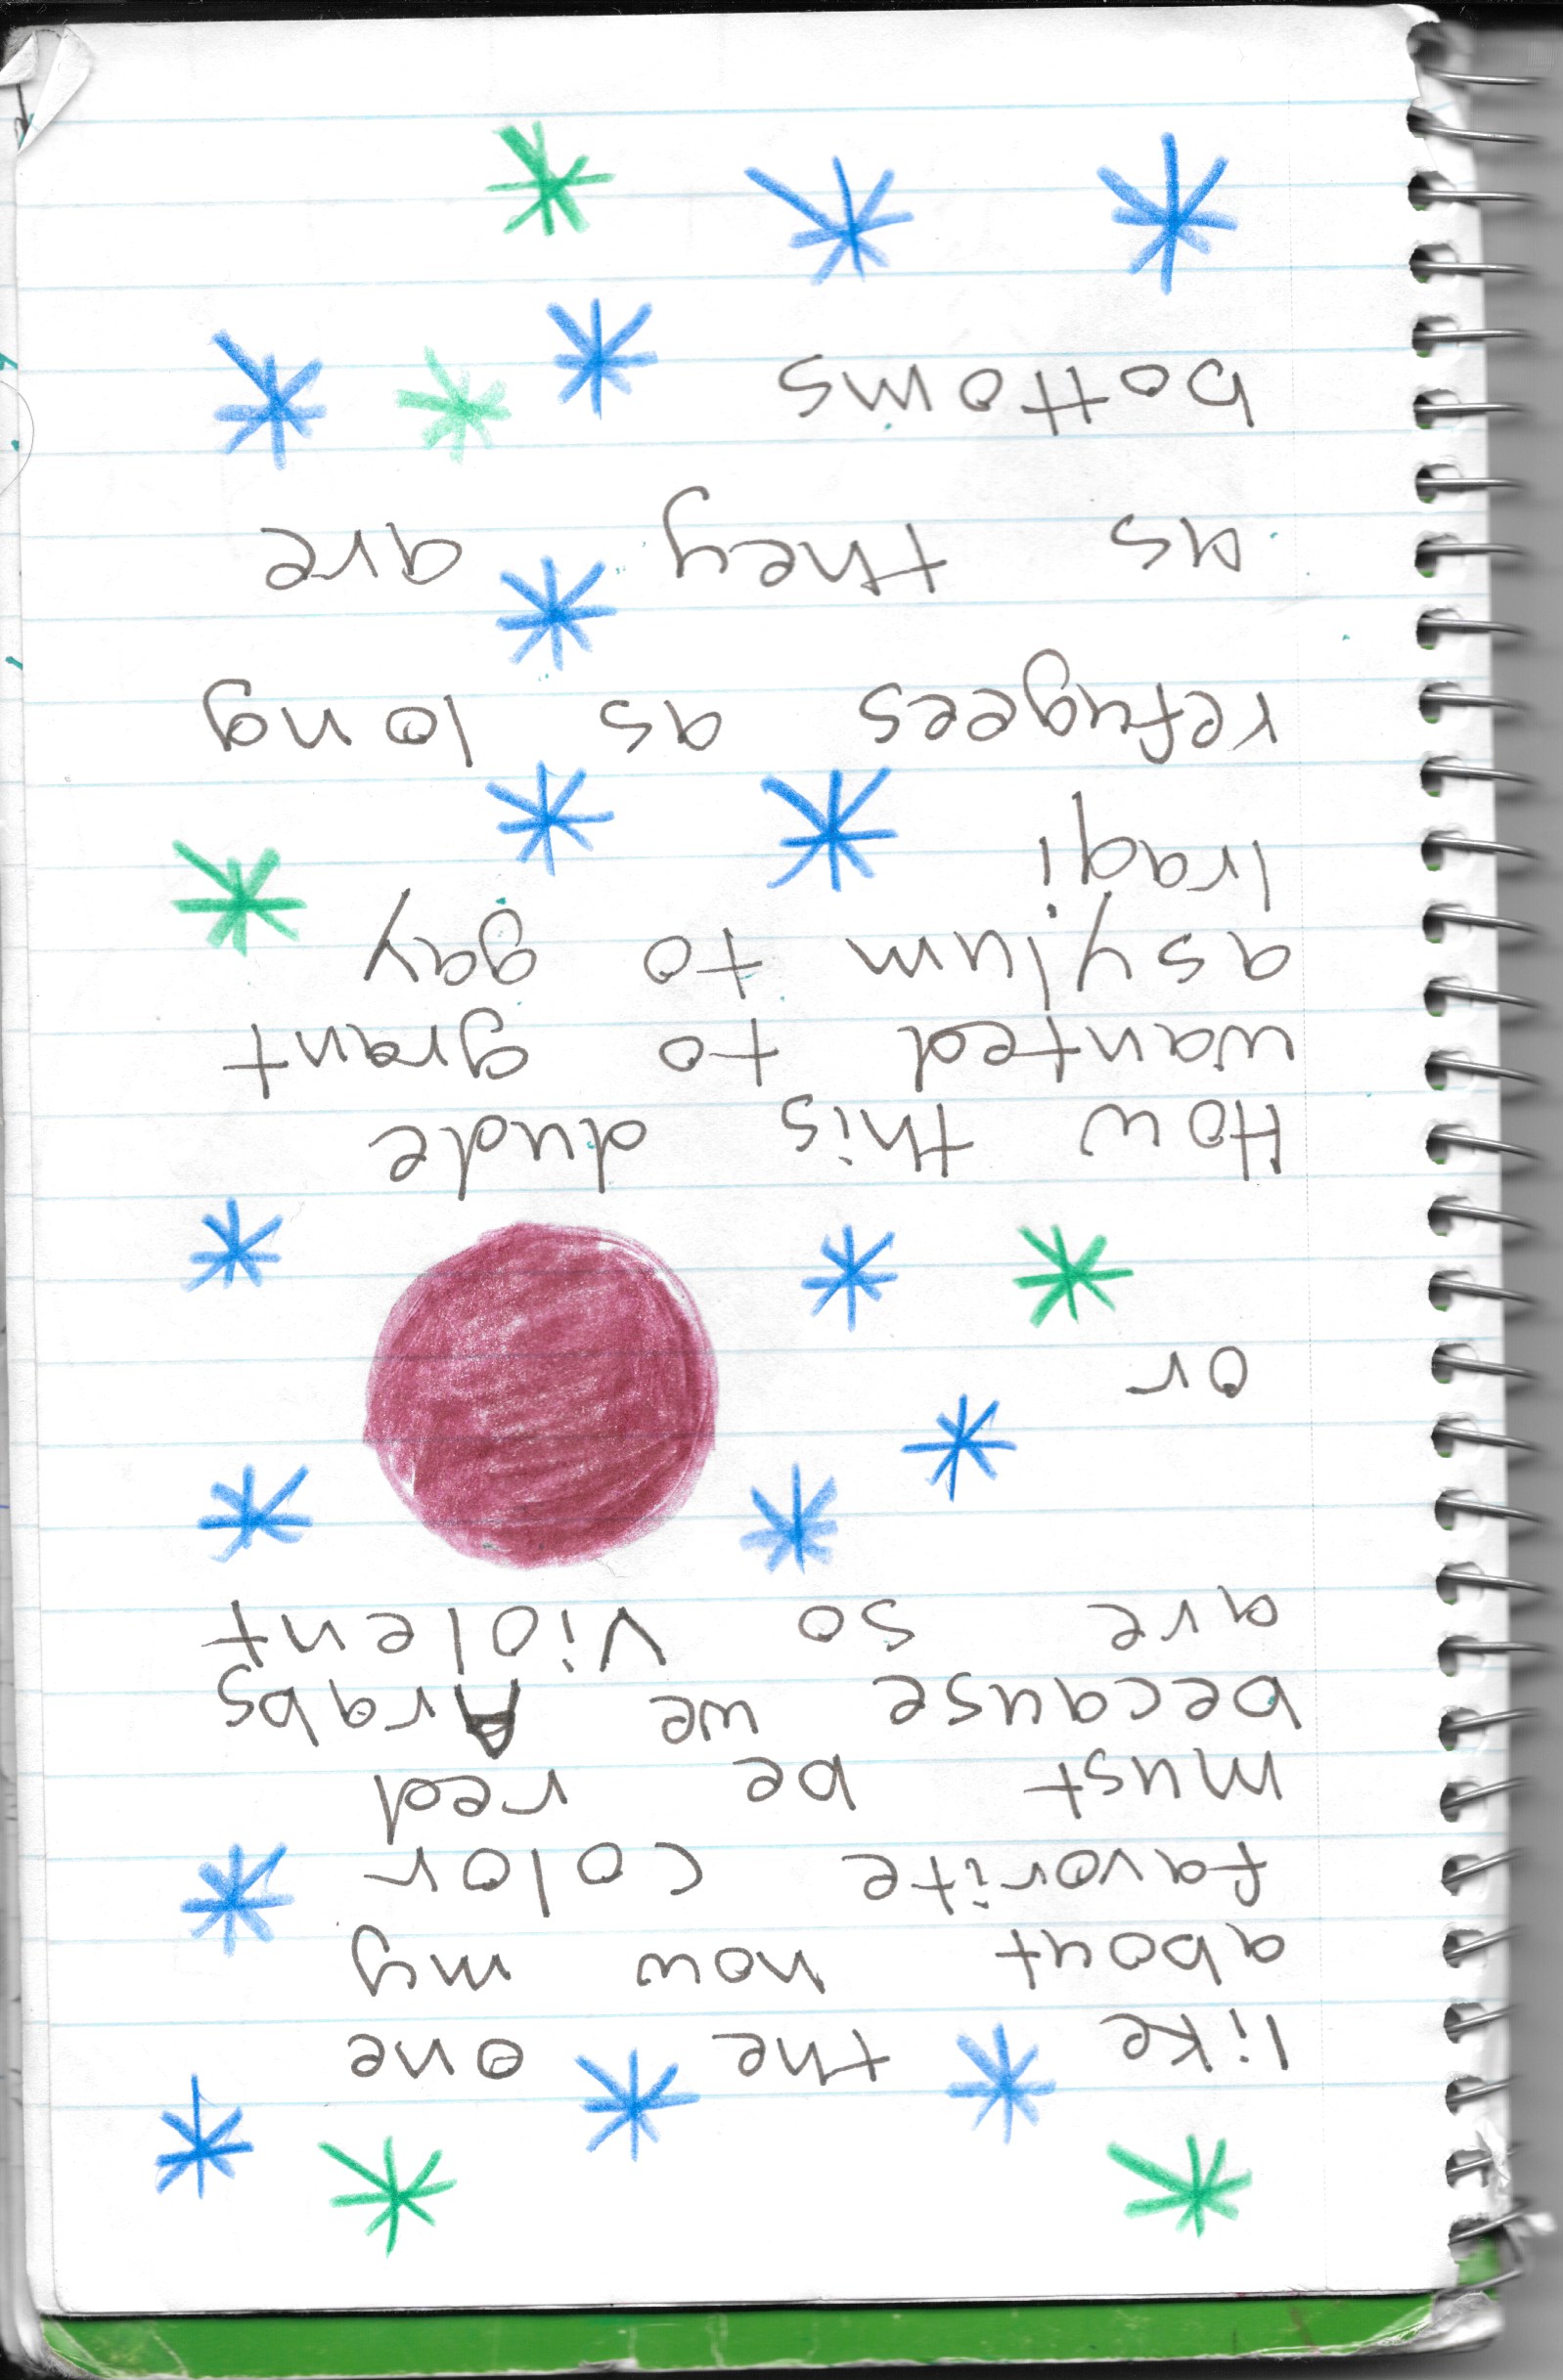 like the one
about how my
favorite color
must be red
because we Arabs
are so violent
or
How this dude
wanted to grant
asylum to gay
Iraqi
refugees as long
as they are
bottoms